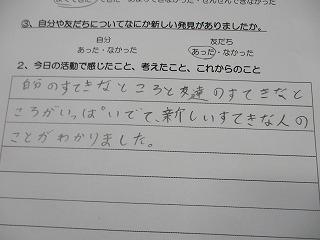 ③、自分や友だちについてなにか新しい発見がありましたか。
自分 友だち
あった・なかった あった・なかった
2、今日の活動で感じたこと、考えたこと、これからのこと
自分のすてきなところと友達のすてきなと
ころがいっぱいでて、新しいすてきな人の
ことがわかりました。